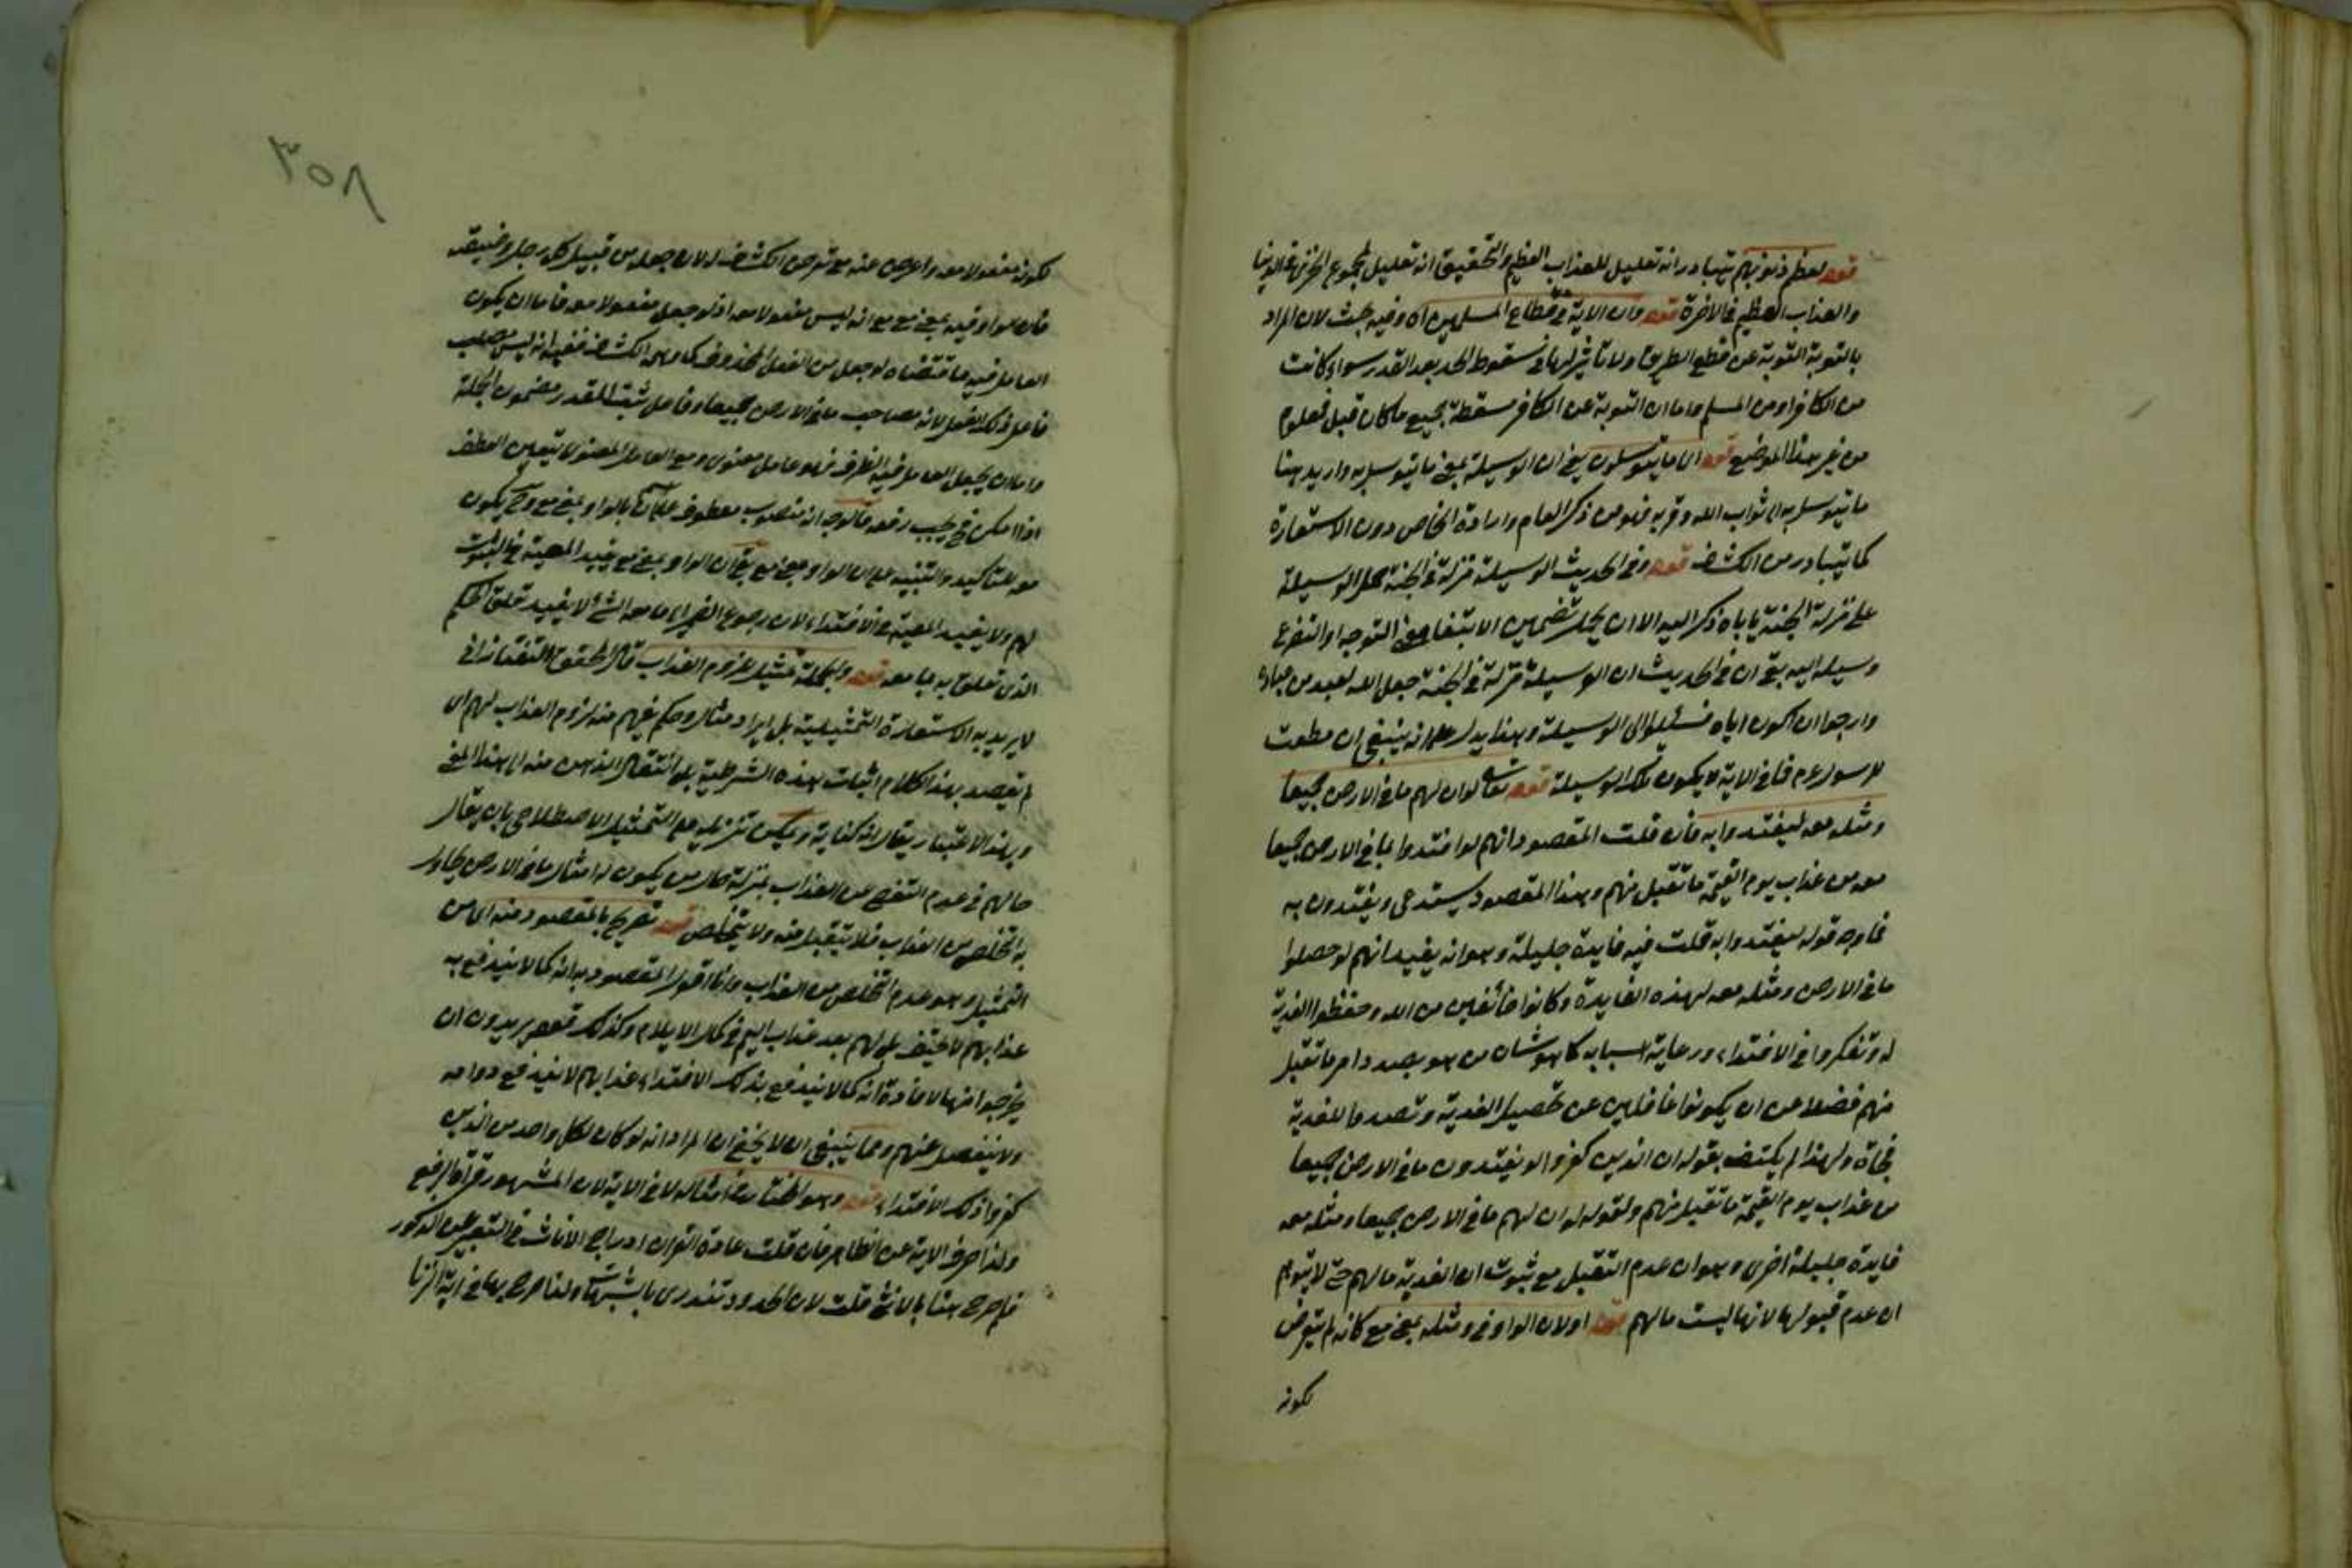 قوله لعظم ذنوبهم يتبادر انه تعليل للعذاب العظيم والتحقيق انه تعليل لمجموع الخزى فى الدنيا
والعذاب العظيم فى الاخرة قوله وان الاية فى قطاع المسلمين اه وفيه بحث لان المراد
بالتوبة التوبة عن قطع الطريق ولا تاثير لها فى سقوط الحد بعد القدر سواء كانت
من الكافر او من المسلم واما ان التوبة عن الكافر مسقطة بجميع ما كان قبل فمعلوم
من غير هذا الموضع قوله الى ما يتوسلون يعنى ان الوسيلة بمعنى ما يتوسل به واريد هنا
ما يتوسل به الى ثواب الله وقربه فهو من ذكر العام وارادة الخاص دون الاستعارة
كما يتبادر من الكشاف قوله وفى الحديث الوسيلة منزلة فى الجنة حمل الوسيلة
على منزلة الجنة ياباه ذكر اليه الا ان يحمل تضمين الابتغاء معنى التوجه او التضرع
وسيله اليه بقى ان فى الحديث ان الوسيلة منزلة فى الجنة جعل الله لعبد من عباده
وارجو ان اكون اياه فسئلوا لى الوسيلة وهذا يدل على انه ينبغى ان
للرسول عم فما فى الاية لا يكون تلك الوسيلة قوله تعالى لو ان لهم ما فى الارض جميعا
ومثله معه ليفتدوا به فان قلت المقصود انهم لو افتدوا بما فى الارض جميعا
معه من عذاب يوم القيمة ما تقبل منهم وهذا المقصود يستدعى ويفتدون به
فما وجه قوله ليفتدوا به قلت فيه فايدة جليلة وهو انه يفيد انهم لو حصلوا
ما فى الارض ومثله معه لهذه الفايدة وكانوا خائفين من الله وحفظوا الفدية
له وتفكروا فى الافتداء ورعاية اسبابه كما هو شان من هو بصدد امر ما تقبل
منهم فضلا عن ان يكونوا غافلين عن تحصيل الفدية وقصد ما للفدية
فجاة ولهذا لم يكتف بقوله ان الذين كفروا لو يفتدون ما فى الارض جميعا
من عذاب يوم القيمة ما تقبل منهم ولقوله لو ان لهم ما فى الارض جميعا ومثله معه
فايدة جليلة اخرى وهو ان عدم التقبل مع ثبوت ان الفدية ما لهم حتى لا يتوهم
ان عدم قبولها لانها ليست ما لهم قوله او لان الواو فى ومثله بمعنى مع كانه لم يتعرض
لكونه
٣٥٨
لكونه مفعولا معه واعرض عنه مع تعرض الكشاف له لان جعله من قبيل كل رجل وضيعته
فان الواو فيه بمعنى مع مع انه ليس مفعولا معه اذ لو جعل مفعولا معه فاما ان يكون
العامل فيه ما لو جعل من الفعل المحذوف كما وهم الكشاف ففيه انه ليس مصاحب
فاعل ذلك الفعل لانه مصاحب ما فى الارض جميعا وفاعل ثبت المقدر مضمون الجملة
واما ان يجعل العامل فيه الظرف فهو عامل معنوى ومع العامل المعنوى يتعين العطف
اذا امكن يجب رفعه فالوجه انه منصوب معطوف على ما بالواو بمعنى مع وح يكون
معه للتاكيد والتنبيه على ان الواو بمعنى مع بقى ان الواو بمعنى مع يفيد المعية فى الثبوت
لهم ولا يفيد المعية فى الافتداء لان رجوع الضمير الى ما معه الشئ لا يفيد تعلق الحكم
الذى تعلق به بما معه قوله والجملة تمثيل للزوم العذاب قال المحقق التفتازانى
لا يريد به الاستعارة التمثيلية بل ايراد مثال وحكم يفهم منه لزوم العذاب لهم اى
لم يقصد بهذا الكلام اثبات هذه الشرطية بل انتقال الذهن منه الى هذا المعنى
وبهذا الاعتبار يقال انه كناية ويمكن تنزيله على التمثيل الاصطلاحى بان يقال
حالهم فى عدم التفصى عن العذاب بمنزلة حال من يكون له امثال ما فى الارض يحاول
به التخلص من العذاب فلا يتقبل منه ولا يتخلص قوله تصريح بالمقصود منه اى من
التمثيل وهو عدم التخلص من العذاب وانا اقول المقصود به انه كما لا يندفع به
عذابهم لا يخفف بل لهم بعد عذاب اليم فى كمال الايلام وكذلك قوله يريدون ان
يخرجوا منها لافادة انه كما لا يندفع بذلك الافتداء عذابهم لا يندفع دوامه
ولا ينفصل عنهم ومما ينبغى ان لا يخفى ان المراد انه لو كان لكل واحد من الذين
كفروا ذلك الافتداء قوله وهو المختار فى امثاله لا فى الاية لان المشهور قراة الرفع
ولذا صرف الاية عن الظاهر فان قلت عادة القران ادراج الاناث فى التعبير عن الذكور
فلم صرح هنا بالانثى قلت لان الحدود تندرى بالشبهات ولذا صرح بها فى اية الزنا